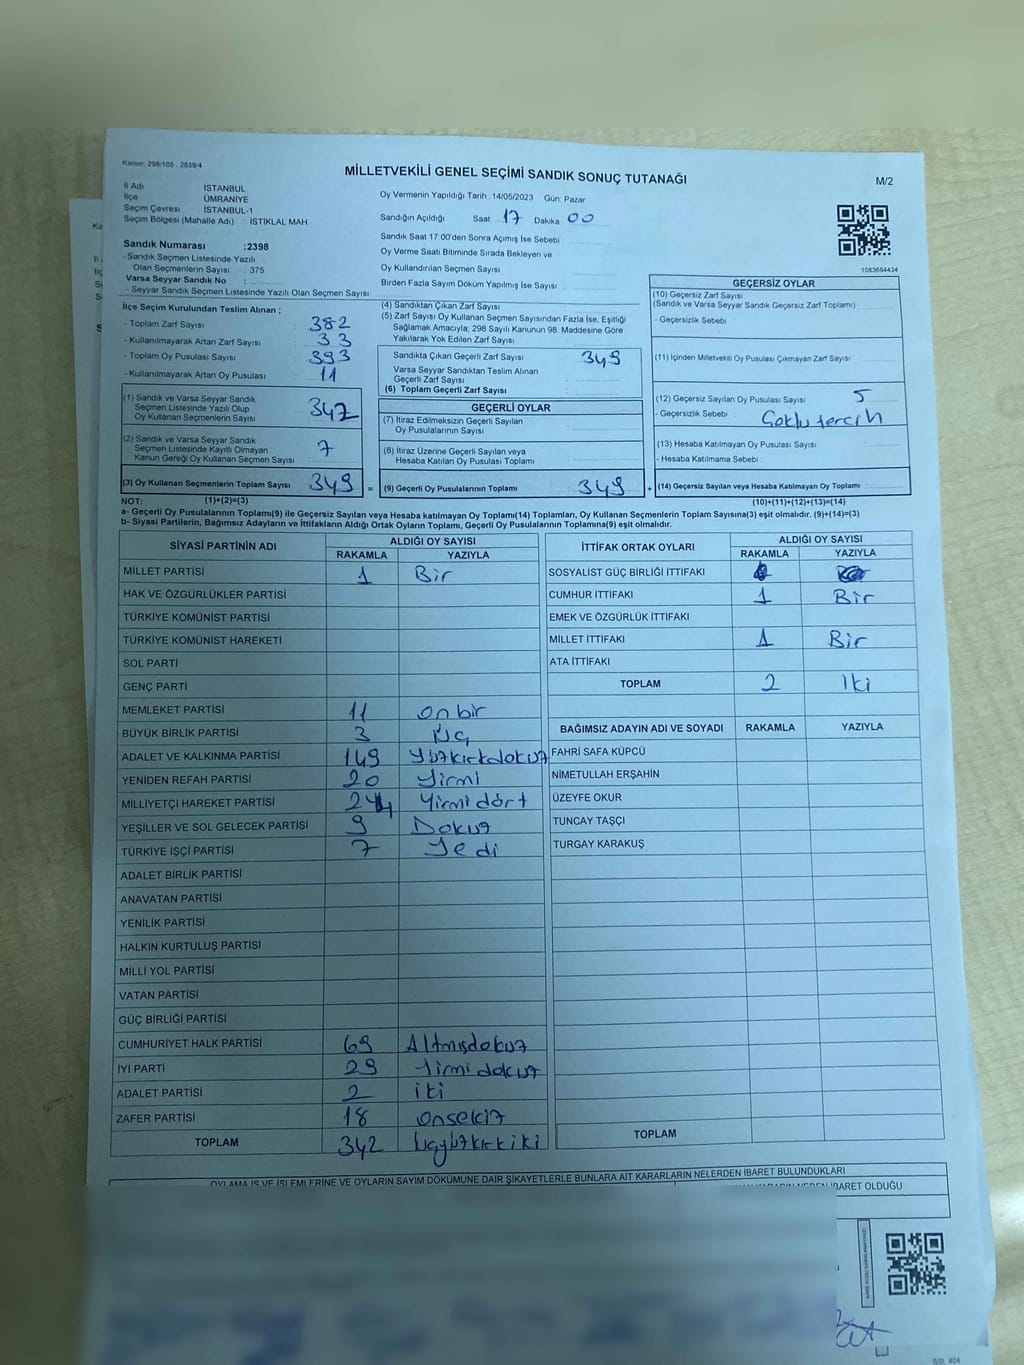 Kanun: 298/105 . 2839/4
MİLLETVEKİLİ GENEL SEÇİMİ SANDIK SONUÇ TUTANAĞI
M/2
İl Adı : İSTANBUL
İlçe : ÜMRANİYE
Seçim Çevresi : İSTANBUL-1
Seçim Bölgesi (Mahalle Adı) : İSTİKLAL MAH
Oy Vermenin Yapıldığı Tarih :14/05/2023 Gün: Pazar
Sandığın Açıldığı Saat: 17 Dakika 00
Sandık Saat 17:00'den Sonra Açımış İse Sebebi :
Oy Verme Saati Bitiminde Sırada Bekleyen ve
Oy Kullandırılan Seçmen Sayısı
Birden Fazla Sayım Döküm Yapılmış İse Sayısı :
1083694434
Sandık Numarası :2398
- Sandık Seçmen Listesinde Yazılı
Olan Seçmenlerin Sayısı : 375
Varsa Seyyar Sandık No :
- Seyyar Sandık Seçmen Listesinde Yazılı Olan Seçmen Sayısı :
İlçe Seçim Kurulundan Teslim Alınan ;
- Toplam Zarf Sayısı : 382
- Kullanılmayarak Artan Zarf Sayısı : 33
- Toplam Oy Pusulası Sayısı : 393
- Kullanılmayarak Artan Oy Pusulası : 11
(1) Sandık ve Varsa Seyyar Sandık
Seçmen Listesinde Yazılı Olup
Oy Kullanan Seçmenlerin Sayısı 342
(2) Sandık ve Varsa Seyyar Sandık
Seçmen Listesinde Kayıtlı Olmayan
Kanun Gereği Oy Kullanan Seçmen Sayısı : 7
(3) Oy Kullanan Seçmenlerin Toplam Sayısı 349 =
(4) Sandıktan Çıkan Zarf Sayısı
(5) Zarf Sayısı Oy Kullanan Seçmen Sayısından Fazla İse, Eşitliği
Sağlamak Amacıyla, 298 Sayılı Kanunun 98. Maddesine Göre
Yakılarak Yok Edilen Zarf Sayısı
Sandıkta Çıkan Geçerli Zarf Sayısı : 349
Varsa Seyyar Sandıktan Teslim Alınan
Geçerli Zarf Sayısı
(6) Toplam Geçerli Zarf Sayısı
GEÇERLİ OYLAR
(7) İtiraz Edilmeksizin Geçerli Sayılan
Oy Pusulalarının Sayısı
(8) İtiraz Üzerine Geçerli Sayılan veya
Hesaba Katılan Oy Pusulası Toplamı
(9) Geçerli Oy Pusulalarının Toplamı 349 +
GEÇERSİZ OYLAR
(10) Geçersiz Zarf Sayısı
(Sandık ve Varsa Seyyar Sandık Geçersiz Zarf Toplamı)
- Geçersizlik Sebebi :
(11) İçinden Milletvekili Oy Pusulası Çıkmayan Zarf Sayısı :
(12) Geçersiz Sayılan Oy Pusulası Sayısı : 5
- Geçersizlik Sebebi : Çoklu tercih
(13) Hesaba Katılmayan Oy Pusulası Sayısı :
- Hesaba Katılmama Sebebi :
(14) Geçersiz Sayılan veya Hesaba Katılmayan Oy Toplamı :
NOT: (1)+(2)=(3) (10)+(11)+(12)+(13)=(14)
a- Geçerli Oy Pusulalarının Toplamı(9) ile Geçersiz Sayılan veya Hesaba katılmayan Oy Toplamı(14) Toplamları, Oy Kullanan Seçmenlerin Toplam Sayısına(3) eşit olmalıdır. (9)+(14)=(3)
b- Siyasi Partilerin, Bağımsız Adayların ve İttifakların Aldığı Ortak Oyların Toplamı, Geçerli Oy Pusulalarının Toplamına(9) eşit olmalıdır.
SİYASİ PARTİNİN ADI ALDIĞI OY SAYISI
RAKAMLA YAZIYLA
MİLLET PARTİSİ 1 Bir
HAK VE ÖZGÜRLÜKLER PARTİSİ
TÜRKİYE KOMÜNİST PARTİSİ
TÜRKİYE KOMÜNİST HAREKETİ
SOL PARTİ
GENÇ PARTİ
MEMLEKET PARTİSİ 11 onbir
BÜYÜK BİRLİK PARTİSİ 3 üç
ADALET VE KALKINMA PARTİSİ 149 yüzkırkdokuz
YENİDEN REFAH PARTİSİ 20 Yirmi
MİLLİYETÇİ HAREKET PARTİSİ 24 Yirmi dört
YEŞİLLER VE SOL GELECEK PARTİSİ 9 Dokuz
TÜRKİYE İŞÇİ PARTİSİ 7 Yedi
ADALET BİRLİK PARTİSİ
ANAVATAN PARTİSİ
YENİLİK PARTİSİ
HALKIN KURTULUŞ PARTİSİ
MİLLİ YOL PARTİSİ
VATAN PARTİSİ
GÜÇ BİRLİĞİ PARTİSİ
CUMHURİYET HALK PARTİSİ 69 Altmışdokuz
İYİ PARTİ 29 Yirmi dokuz
ADALET PARTİSİ 2 iki
ZAFER PARTİSİ 18 onsekiz
TOPLAM 342 üçyüzkırkiki
İTTİFAK ORTAK OYLARI ALDIĞI OY SAYISI
RAKAMLA YAZIYLA
SOSYALİST GÜÇ BİRLİĞİ İTTİFAKI
CUMHUR İTTİFAKI 1 Bir
EMEK VE ÖZGÜRLÜK İTTİFAKI
MİLLET İTTİFAKI 1 Bir
ATA İTTİFAKI
TOPLAM 2 İki
BAĞIMSIZ ADAYIN ADI VE SOYADI RAKAMLA YAZIYLA
FAHRİ SAFA KÜPCÜ
NİMETULLAH ERŞAHİN
ÜZEYFE OKUR
TUNCAY TAŞÇI
TURGAY KARAKUŞ
TOPLAM
OYLAMA İŞ VE İŞLEMLERİNE VE OYLARIN SAYIM DÖKÜMÜNE DAİR ŞİKAYETLERLE BUNLARA AİT KARARLARIN NELERDEN İBARET BULUNDUKLARI
NEDEN İBARET OLDUĞU